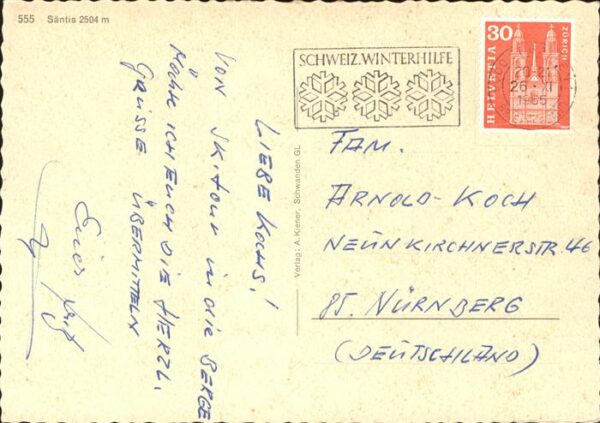 555 Säntis 2504 m
SCHWEIZ. WINTERHILFE
30
HELVETIA
ZÜRICH
26. XI
LIEBE KOCHS!
VON SKITOUR IN DIE BERGE
MÖCHTE ICH EUCH DIE HERZL.
GRÜSSE ÜBERMITTELN
Euer
Verlag: A. Kiener, Schwanden GL
FAM.
ARNOLD-KOCH
NEUNKIRCHNERSTR. 46
85. NÜRNBERG
(DEUTSCHLAND)